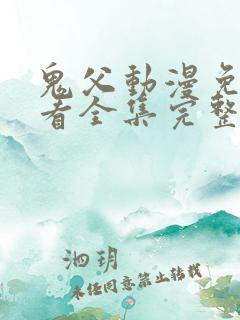 鬼父動漫免
看全集完整
泗玥
未经同意禁止转载